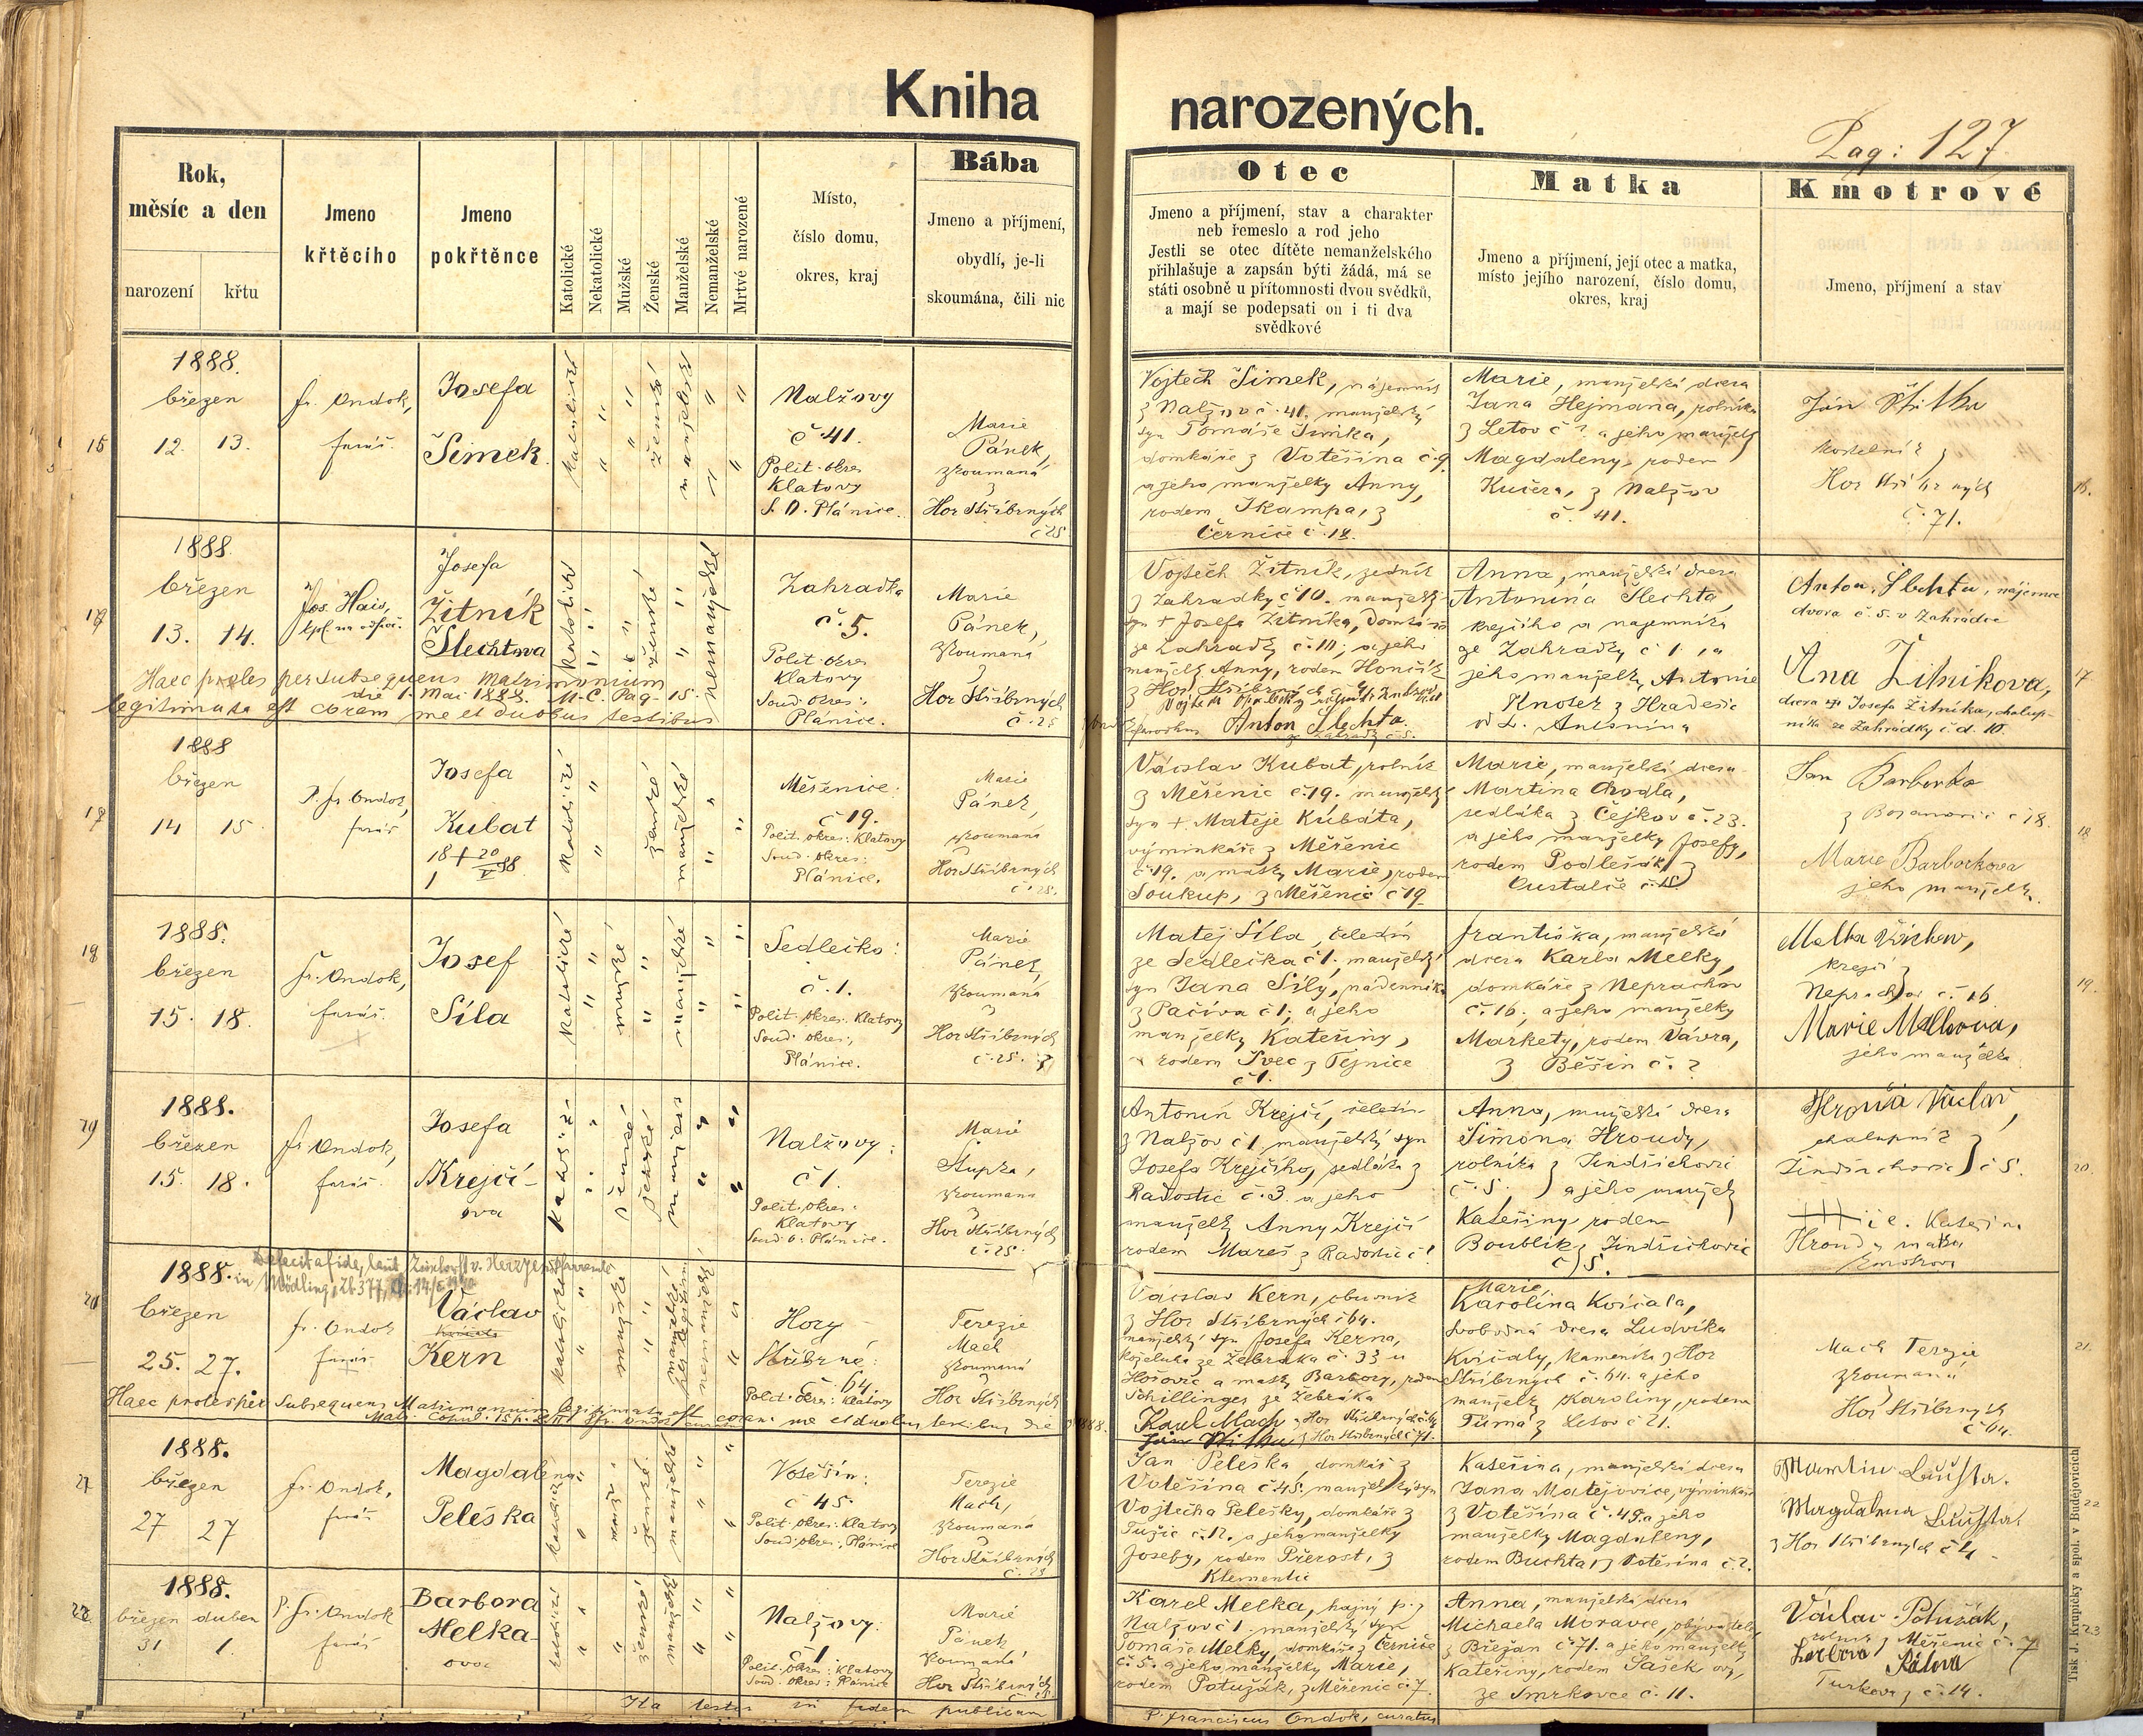 Kniha narozených.
Pag: 127
Rok,
měsíc a den
narození
křtu
Jmeno
křtěcího
Jmeno
pokřtěnce
Katolické
Nekatolické
Mužské
Ženské
Manželské
Nemanželské
Mrtvé narozené
Místo,
číslo domu,
okres, kraj
Bába
Jmeno a příjmení,
obydlí, je-li
skoumána, čili nic
Otec
Jmeno a příjmení, stav a charakter
neb řemeslo a rod jeho
Jestli se otec dítěte nemanželského
přihlašuje a zapsán býti žádá, má se
státi osobně u přítomnosti dvou svědků,
a mají se podepsati on i ti dva
svědkové
Matka
Jmeno a příjmení, její otec a matka,
místo jejího narození, číslo domu,
okres, kraj
Kmotrové
Jmeno, příjmení a stav
1888.
březen
12. 13.
fr. Ondok,
farář.
Josefa
Šimek
katolické
ženské
manželské
Nalžovy
č 41.
Polit. okres
Klatovy
S. O. Plánice.
Marie
Pánek,
zkoumaná
z
Hor Stříbrných
č 25
Vojtěch Šimek, nájemník
z Nalžov č. 41. manželský
syn Tomáše Šimka,
domkáře z Votěšína č. 9
a jeho manželky Anny,
rodem Škampa, z
Černíče č. 18.
Marie, manželská dcera
Jana Hejmana, rolníka
z Letov č ? a jeho manželky
Magdaleny, rodem
Kučera, z Nalžov
č. 41.
Ján Střitka
kostelník z
Hor Stříbrných
č. 71.
16.
1888.
březen
13. 14.
Jos. Hais,
Josefa
Žitník
Šlechtova
katolické
ženské
nemanželské
Zahradka
č. 5.
Polit. okres
Klatovy
Soud. okres:
Plánice.
Marie
Pánek,
zkoumaná
z
Hor Stříbrných
č. 25
Haec proles per subsequens matrimonium
die 1. Mai 1888. M. C. Pag. 15.
legitimata est coram me et duobus testibus
Vojtěch Žitník, zedník
z Zahradky č 10. manželský
syn + Josefa Žitníka, domkáře
ze Zahradky č. 10, a jeho
manželky Anny, rodem
Anton Šlechta.
Anna, manželská dcera
Antonína Šlechta,
krejčího a nájemníka
ze Zahradky č 1. a
jeho manželky Antonie
Knotek z Hradešic
Anton Šlechta, nájemce
dvora č. 5. v Zahrádce
Ana Žitnikova,
dcera Josefa Žitníka, chalup-
níka ze Zahrádky č. d. 10.
17.
1888
březen
14 15
P. fr. Ondok,
farář
Josefa
Kubat
katolické
ženské
manželské
Měřenice:
č 19.
Polit. okres: Klatovy
Soud. okres:
Plánice.
Marie
Pánek,
zkoumaná
z
Hor Stříbrných
č. 25.
Václav Kubat, rolník
z Měřenic č. 19. manželský
syn + Matěje Kubáta,
výminkáře z Měřenic
č. 19. a matky Marie, rodem
Soukup, z Měřenic č 19
Marie, manželská dcera
Martina Chodla,
sedláka z Čejkov č. 23.
a jeho manželky Josefy,
rodem Podlešák z
Jan Barborka
č 18.
Marie Barborkova
jeho manželka.
18
1888.
březen
15. 18.
fr. Ondok,
farář.
Josef
Síla
katolické
mužské
manželské
Sedlečko:
č. 1.
Polit. okres: Klatovy
Soud. okres:
Plánice.
Marie
Pánek,
zkoumaná
z
Hor Stříbrných
č. 25.
Matěj Síla, čeledín
ze Sedlečka č 1. manželský
syn Jana Síly, nádenníka
z Pačiva č 1; a jeho
manželky Kateřiny,
rodem Švec z Tejnice
č 1.
Františka, manželská
dcera Karla Melky,
domkáře z Neprachov
č. 16; a jeho manželky
Markety, rodem Vávra,
z Běšin č. ?
Melka
krejčí z
Neprachov č. 16
Marie Melkova,
jeho manželka
19.
1888.
březen
15. 18.
fr. Ondok,
farář.
Josefa
Krejčí-
ova
Nalžovy:
č 1.
Polit. okres:
Klatovy
Soud. o: Plánice.
Marie
Štupka,
zkoumaná
z
Hor Stříbrných
č. 25.
Antonín Krejčí, čeledín
z Nalžov č 1. manželský syn
Josefa Krejčího, sedláka z
Radostic č. 3. a jeho
manželky Anny Krejčí
rodem Mareš z Radostic č 1
Anna, manželská dcera
Šimona Hroudy,
rolníka z Jindřichovic
č. 5. a jeho manželky
Kateřiny rodem
Boublík z Jindřichovic
č 5.
Václav,
chalupník z
Jindřichovic č 5.
Kateřina
Hroudy matka
20.
1888.
březen
25. 27.
fr. Ondok
farář
Václav
Kern
katolické
mužské
nemanželské
Hory
Stříbrné:
č. 64
Polit. okres: Klatovy
Terezie
Mach
zkoumaná
z
Hor Stříbrných
Haec proles per subsequens Matrimonium legitimata est coram me et duobus testibus die 1888.
Václav Kern, obuvník
z Hor Stříbrných č 64.
manželský syn Josefa Kerna,
koželuha ze Žebráka č. 33 u
Hořovic a matky Barbory, rodem
Schillinger ze Žebráka
Karl Mach z Hor Stříbrných
Ján Střitka z Hor Stříbrných č 71.
Marie
Karolina Kvíčala,
svobodná dcera Ludvíka
Kvíčaly, kameníka z Hor
Stříbrných č. 64. a jeho
manželky Karoliny, rodem
Tůma z Letov č 21.
Mach Terezie
zkoumaná
z
Hor Stříbrných
č 64.
21.
1888.
březen
27 27
fr. Ondok,
farář
Magdalena
Peleška
ženské
manželské
Votěšín:
č 45.
Polit. okres: Klatovy
Soud. okres: Plánice
Terezie
Mach,
zkoumaná
z
Hor Stříbrných
Jan Peleška, domkář z
Votěšína č 45. manželský syn
Vojtěcha Pelešky, domkáře z
č. 12. a jeho manželky
Josefy, rodem Přerost, z
Klementic
Kateřina, manželská dcera
Jana Matějovice, výminkáře
z Votěšína č. 49. a jeho
manželky Magdaleny,
rodem Buchta, z Votěšína č. 2.
Martin
Magdalena
z Hor Stříbrných č 4
22
1888.
březen duben
31. 1.
P. fr. Ondok
farář
Barbora
Melka-
ova
ženské
manželské
Nalžovy:
č 1.
Polit. okres: Klatovy
Soud. okres: Plánice
Marie
Pánek,
zkoumaná
z
Hor Stříbrných
Karel Melka, hajný p. z
Nalžov č 1. manželský syn
Tomáše Melky, domkáře z Černíče
č. 5. a jeho manželky Marie,
rodem Potužák, z Měřenic č. 7.
Anna, manželská dcera
Michaela Moravce, obyvatele
z Břežan č. 71. a jeho manželky
Kateřiny, rodem Šašek ovy,
ze Smrkovce č. 11.
Václav Potužák,
rolník z Měřenic č. 7
č. 14.
23
Ita testor in fidem publicam
P. Franciscus Ondok, curatus
Tisk J. Krapičky a spol. v Budějovicích